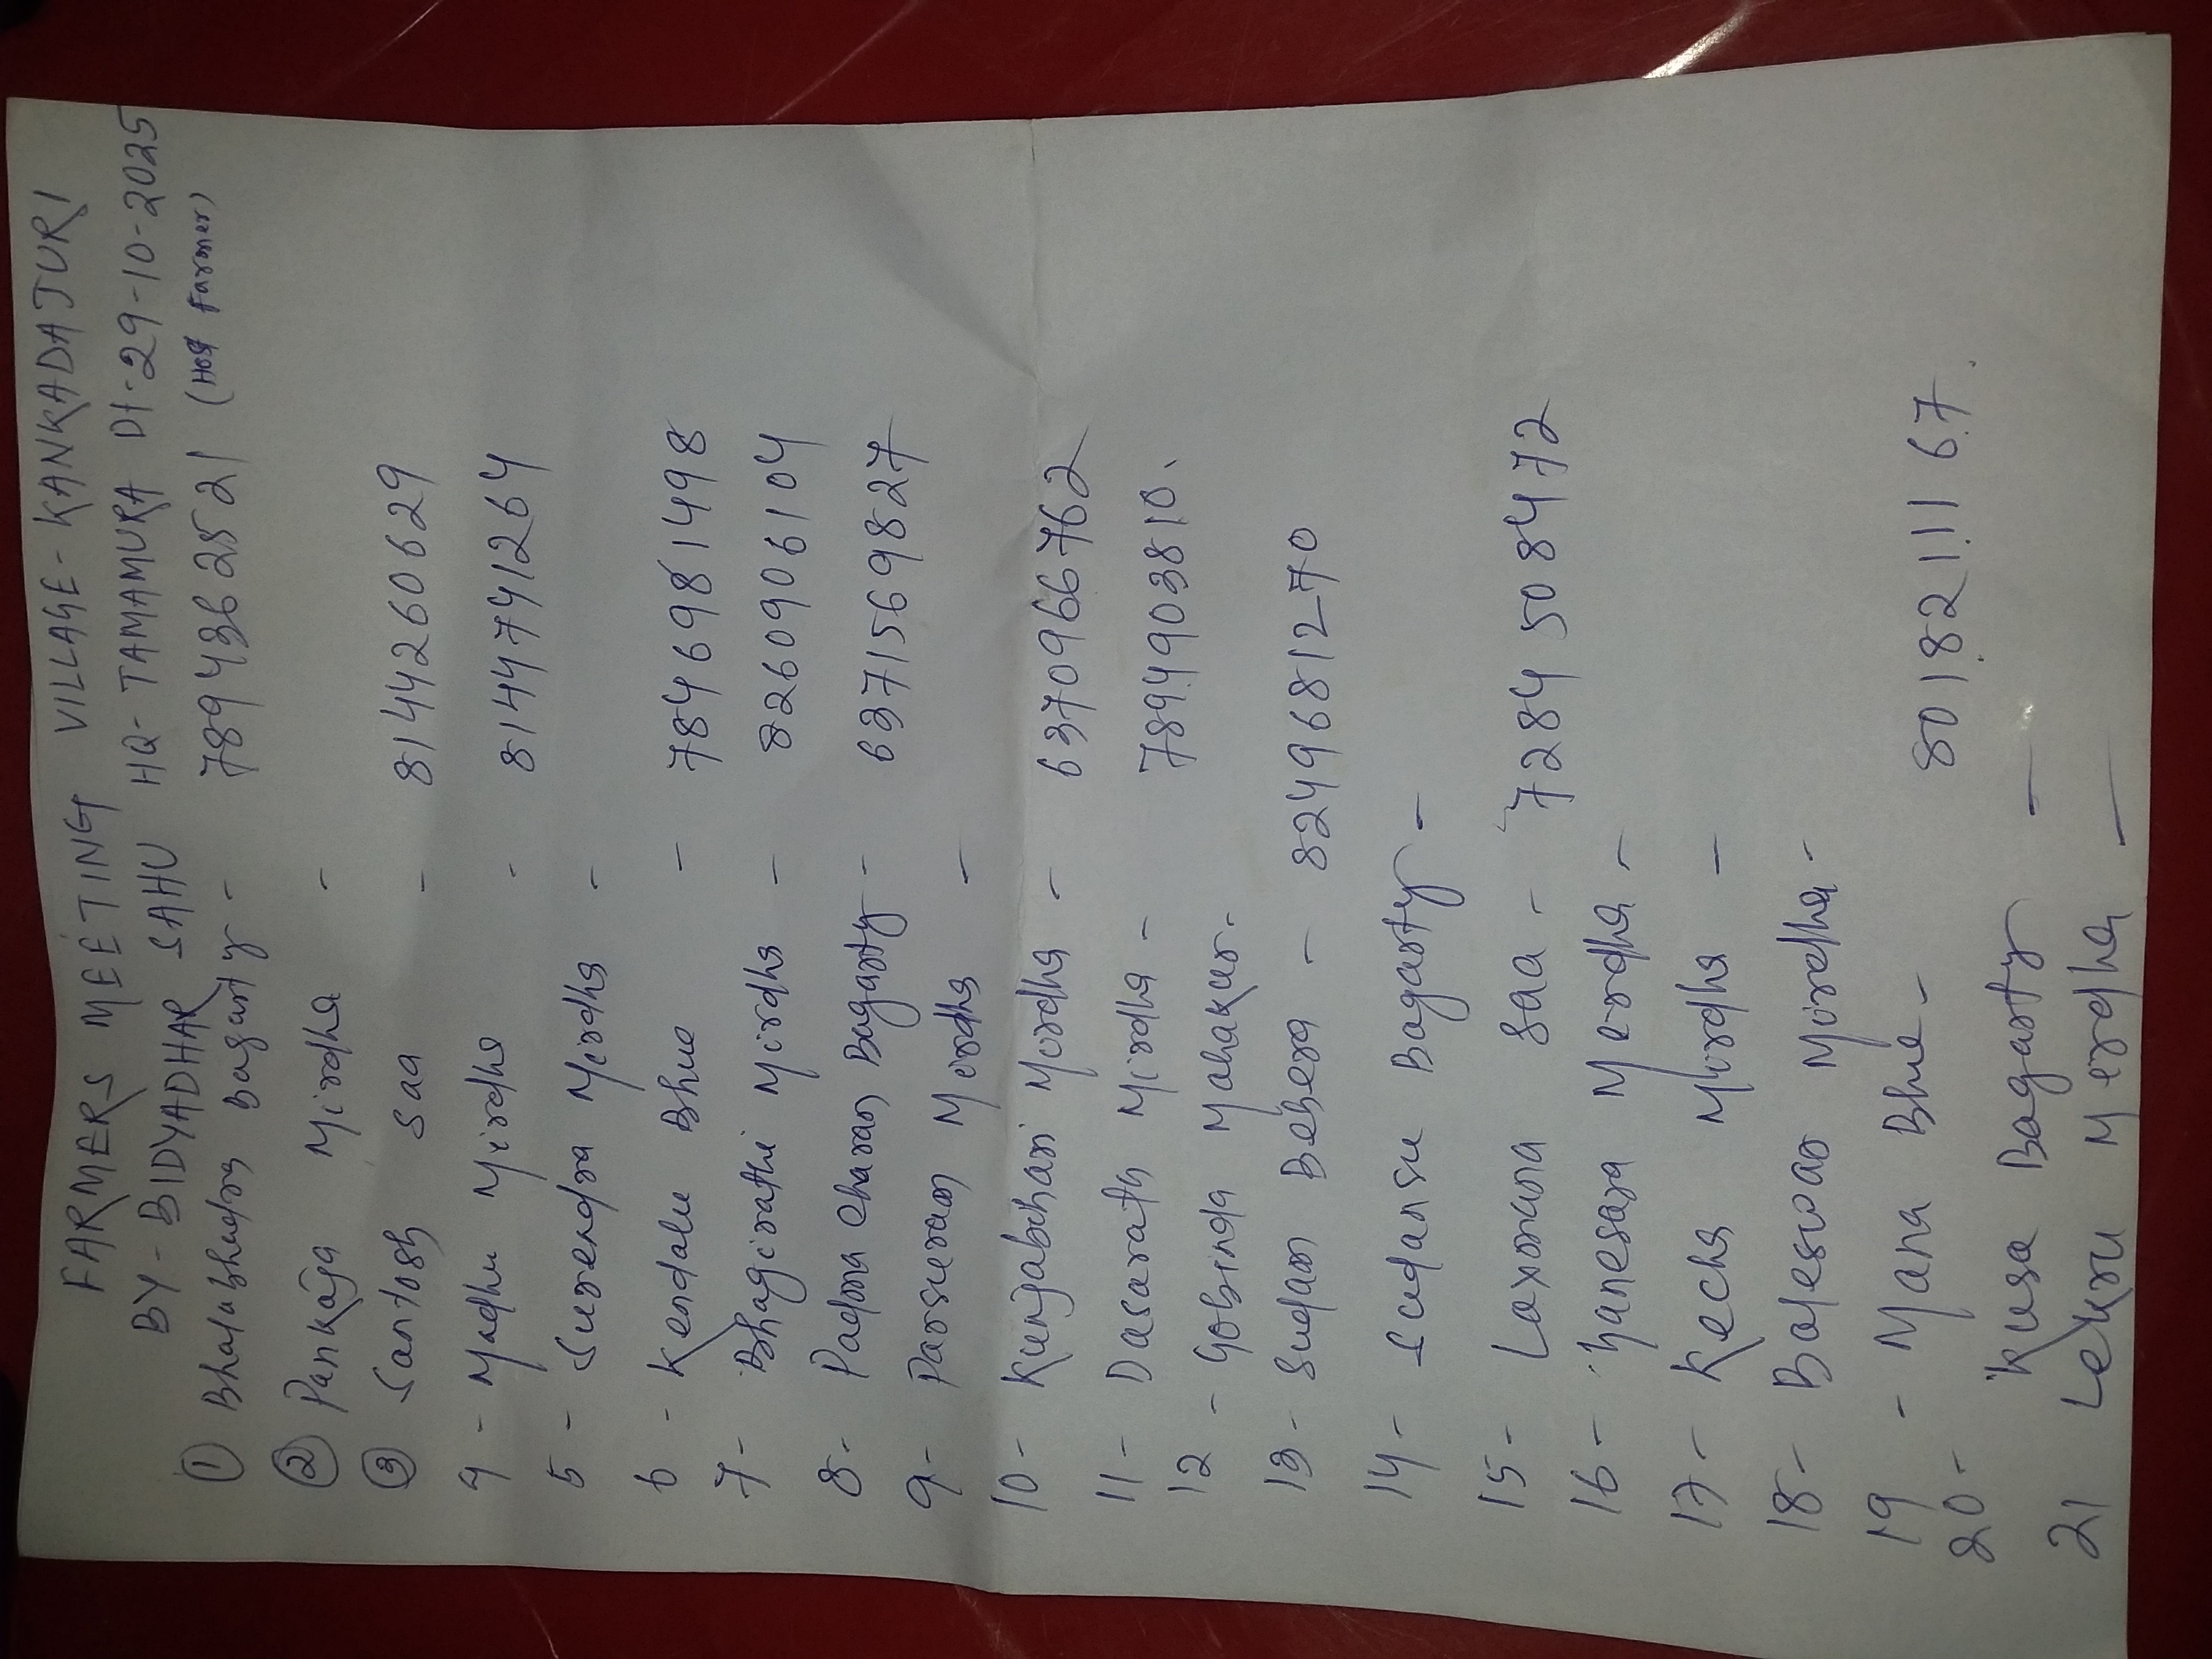 FARMERS MEETING VILLAGE - KANKADAJURI
BY - BIDYADHAR SAHU HQ - TAMAMURA Dt - 29-10-2025
① Bhalabhadra Bagarty - 7894362521 (Host Farmer)
② Pankaja Mirdha -
③ Santosh Saa - 8144260629
4 - Madhu Mirdha - 8144741264
5 - Surendra Mirdha -
6 - Kendalu Bhue - 7846981498
7 - Bhagirathi Mirdha - 8260906104
8 - Padma Charan Bagarty - 6371569827
9 - Parsuram Mirdha -
10 - Kunjabihari Mirdha - 6370966762
11 - Dasarath Mirdha - 7894903810.
12 - Gobinda Mahakur.
13 - Sudam Behera - 8249681270
14 - Sudansu Bagarty -
15 - Laxmana Saa - 7284508472
16 - Ganesara Merdha -
17 - Kecha Mirdha -
18 - Baleswar Mirdha -
19 - Mana Bhue - 8018211167.
20 - Kusa Bagarty -
21 Lekru Merdha -